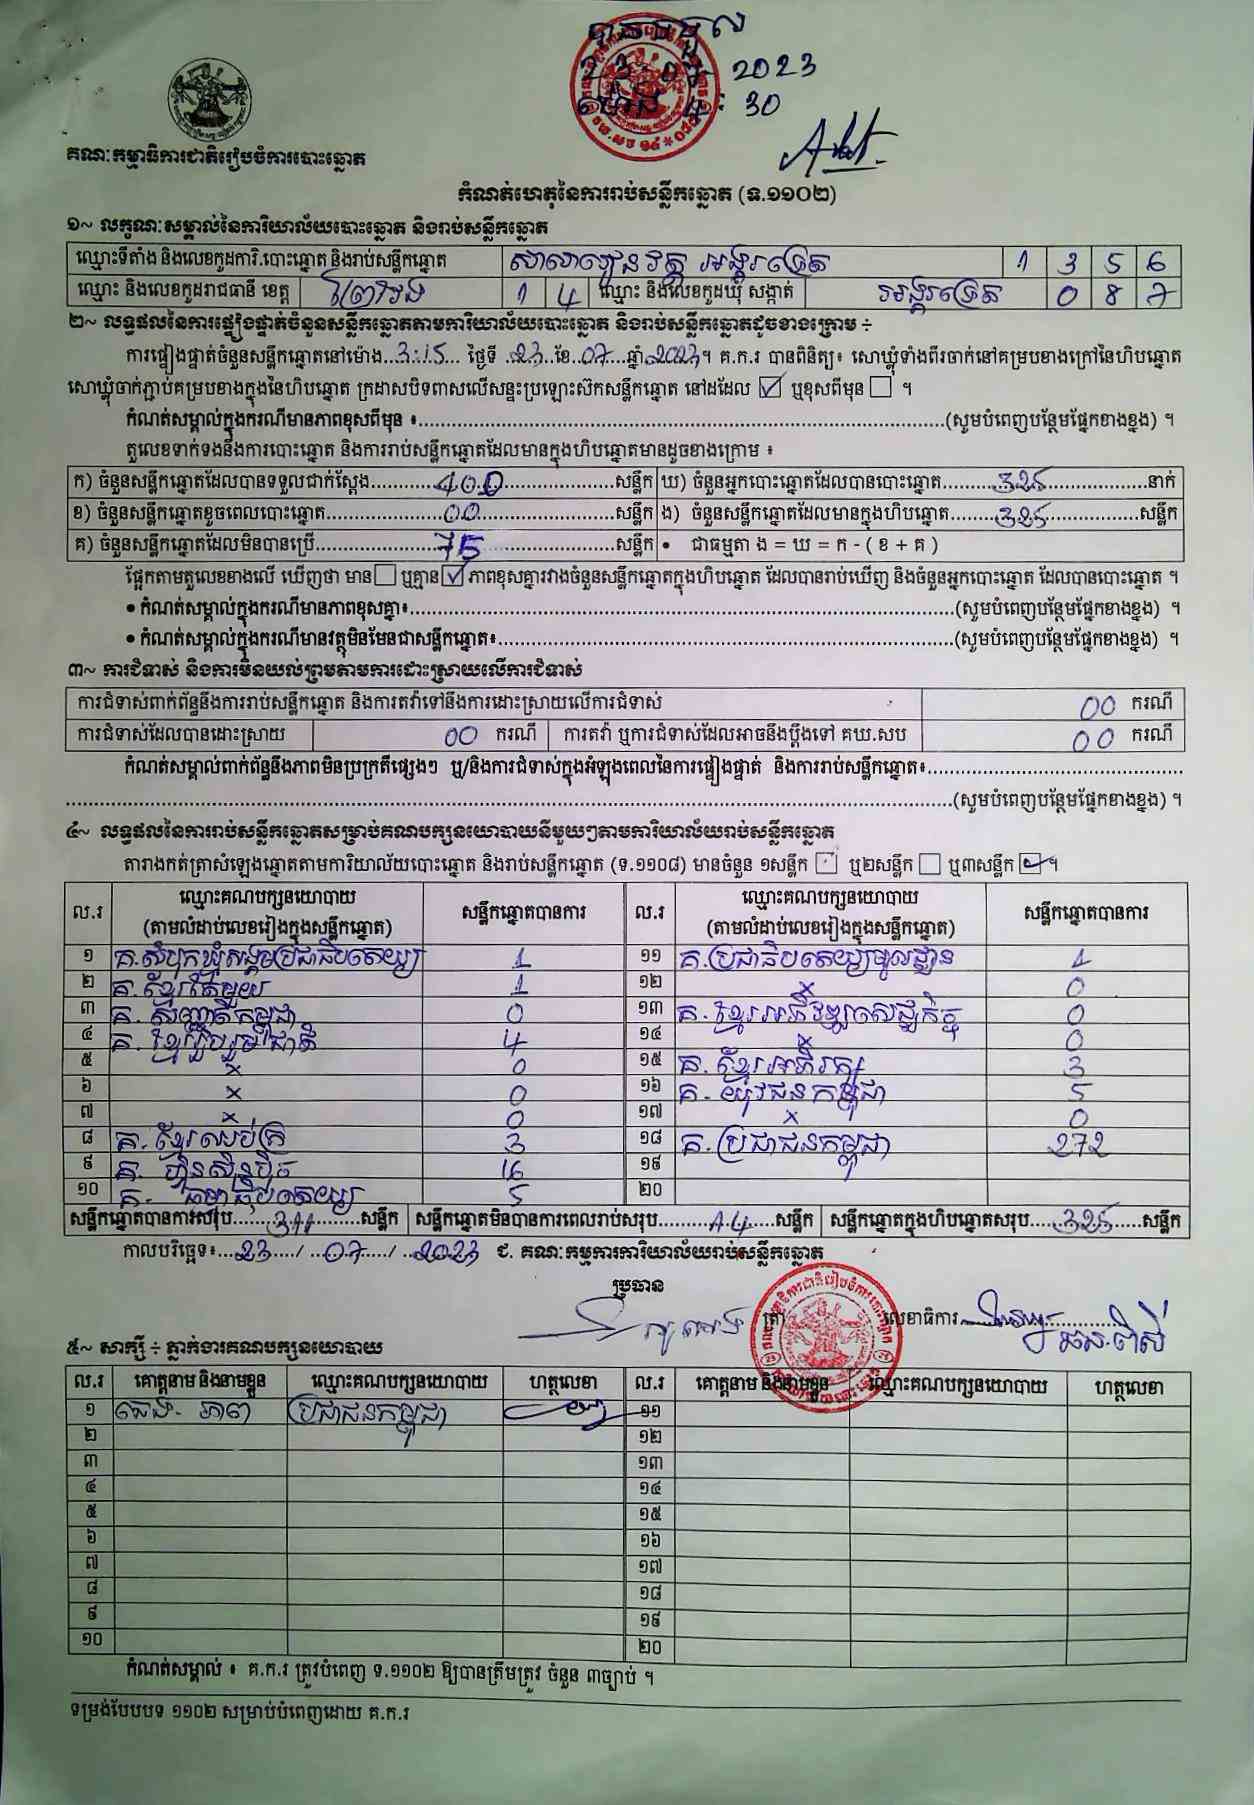 បានទទួល
23.07.2023
ម៉ោង 4:30
គណៈកម្មាធិការជាតិរៀបចំការបោះឆ្នោត
កំណត់ហេតុនៃការរាប់សន្លឹកឆ្នោត (ទ.១១០២)
១~ លក្ខណៈសម្គាល់នៃការិយាល័យបោះឆ្នោត និងរាប់សន្លឹកឆ្នោត
ឈ្មោះទីតាំង និងលេខកូដការិ.បោះឆ្នោត និងរាប់សន្លឹកឆ្នោត សាលារៀនវត្ត អង្គរទ្រេត 1 3 5 6
ឈ្មោះ និងលេខកូដរាជធានី ខេត្ត ព្រៃវែង 1 4 ឈ្មោះ និងលេខកូដឃុំ សង្កាត់ អង្គរទ្រេត 0 8 7
២~ លទ្ធផលនៃការផ្ទៀងផ្ទាត់ចំនួនសន្លឹកឆ្នោតតាមការិយាល័យបោះឆ្នោត និងរាប់សន្លឹកឆ្នោតដូចខាងក្រោម ÷
ការផ្ទៀងផ្ទាត់ចំនួនសន្លឹកឆ្នោតនៅម៉ោង...3:15... ថ្ងៃទី .23...ខែ.07...ឆ្នាំ.2023។ គ.ក.រ បានពិនិត្យ៖ សោឃ្លុំទាំងពីរចាក់នៅគម្របខាងក្រៅនៃហិបឆ្នោត
សោឃ្លុំចាក់ភ្ជាប់គម្របខាងក្នុងនៃហិបឆ្នោត ក្រដាសបិទពាសលើសន្ទះប្រឡោះស៊កសន្លឹកឆ្នោត នៅដដែល ☑ ឬខុសពីមុន ☐ ។
កំណត់សម្គាល់ក្នុងករណីមានភាពខុសពីមុន ៖...(សូមបំពេញបន្ថែមផ្នែកខាងខ្នង) ។
តួលេខទាក់ទងនឹងការបោះឆ្នោត និងការរាប់សន្លឹកឆ្នោតដែលមានក្នុងហិបឆ្នោតមានដូចខាងក្រោម ៖
ក) ចំនួនសន្លឹកឆ្នោតដែលបានទទួលជាក់ស្តែង...400...សន្លឹក ឃ) ចំនួនអ្នកបោះឆ្នោតដែលបានបោះឆ្នោត...325...នាក់
ខ) ចំនួនសន្លឹកឆ្នោតខូចពេលបោះឆ្នោត...00...សន្លឹក ង) ចំនួនសន្លឹកឆ្នោតដែលមានក្នុងហិបឆ្នោត...325...សន្លឹក
គ) ចំនួនសន្លឹកឆ្នោតដែលមិនបានប្រើ...75...សន្លឹក • ជាធម្មតា ង = ឃ = ក - ( ខ + គ )
ផ្អែកតាមតួលេខខាងលើ ឃើញថា មាន ☐ ឬគ្មាន ☑ ភាពខុសគ្នារវាងចំនួនសន្លឹកឆ្នោតក្នុងហិបឆ្នោត ដែលបានរាប់ឃើញ និងចំនួនអ្នកបោះឆ្នោត ដែលបានបោះឆ្នោត ។
• កំណត់សម្គាល់ក្នុងករណីមានភាពខុសគ្នា៖...(សូមបំពេញបន្ថែមផ្នែកខាងខ្នង) ។
• កំណត់សម្គាល់ក្នុងករណីមានវត្ថុមិនមែនជាសន្លឹកឆ្នោត៖...(សូមបំពេញបន្ថែមផ្នែកខាងខ្នង) ។
៣~ ការជំទាស់ និងការមិនយល់ព្រមតាមការដោះស្រាយលើការជំទាស់
ការជំទាស់ពាក់ព័ន្ធនឹងការរាប់សន្លឹកឆ្នោត និងការតវ៉ាទៅនឹងការដោះស្រាយលើការជំទាស់ 00 ករណី
ការជំទាស់ដែលបានដោះស្រាយ 00 ករណី ការតវ៉ា ឬការជំទាស់ដែលអាចនឹងប្តឹងទៅ គឃ.សប 00 ករណី
កំណត់សម្គាល់ពាក់ព័ន្ធនឹងភាពមិនប្រក្រតីផ្សេងៗ ឬ/និងការជំទាស់ក្នុងអំឡុងពេលនៃការផ្ទៀងផ្ទាត់ និងការរាប់សន្លឹកឆ្នោត៖...
...(សូមបំពេញបន្ថែមផ្នែកខាងខ្នង) ។
៤~ លទ្ធផលនៃការរាប់សន្លឹកឆ្នោតសម្រាប់គណបក្សនយោបាយនីមួយៗតាមការិយាល័យរាប់សន្លឹកឆ្នោត
តារាងកត់ត្រាសំឡេងឆ្នោតតាមការិយាល័យបោះឆ្នោត និងរាប់សន្លឹកឆ្នោត (ទ.១១០៨) មានចំនួន ១សន្លឹក ☐ ឬ២សន្លឹក ☐ ឬ៣សន្លឹក ☑។
ល.រ ឈ្មោះគណបក្សនយោបាយ (តាមលំដាប់លេខរៀងក្នុងសន្លឹកឆ្នោត) សន្លឹកឆ្នោតបានការ ល.រ ឈ្មោះគណបក្សនយោបាយ (តាមលំដាប់លេខរៀងក្នុងសន្លឹកឆ្នោត) សន្លឹកឆ្នោតបានការ
១ គ.សំបុកឃ្មុំសង្គមប្រជាធិបតេយ្យ 1 ១១ គ.ប្រជាធិបតេយ្យមូលដ្ឋាន 1
២ គ.ខ្មែរតែមួយ 1 ១២ x 0
៣ គ.សញ្ជាតិកម្ពុជា 0 ១៣ គ.ខ្មែរអភិវឌ្ឍសេដ្ឋកិច្ច 0
៤ គ.ខ្មែររួបរួមជាតិ 4 ១៤ x 0
៥ x 0 ១៥ គ.ខ្មែរអភិរក្ស 3
៦ x 0 ១៦ គ.យុវជនកម្ពុជា 5
៧ x 0 ១៧ x 0
៨ គ.ខ្មែរឈប់ក្រ 3 ១៨ គ.ប្រជាជនកម្ពុជា 272
៩ គ.ហ្វ៊ុនស៊ិនប៉ិច 16 ១៩
១០ គ.ធម្មាធិបតេយ្យ 5 ២០
សន្លឹកឆ្នោតបានការសរុប...311...សន្លឹក សន្លឹកឆ្នោតមិនបានការពេលរាប់សរុប...14...សន្លឹក សន្លឹកឆ្នោតក្នុងហិបឆ្នោតសរុប...325...សន្លឹក
កាលបរិច្ឆេទ៖...23.../...07.../...2023 ជ. គណៈកម្មការការិយាល័យរាប់សន្លឹកឆ្នោត
ប្រធាន
ត្រា លេខាធិការ
៥~ សាក្សី ÷ ភ្នាក់ងារគណបក្សនយោបាយ
ល.រ គោត្តនាម និងនាមខ្លួន ឈ្មោះគណបក្សនយោបាយ ហត្ថលេខា ល.រ គោត្តនាម និងនាមខ្លួន ឈ្មោះគណបក្សនយោបាយ ហត្ថលេខា
១ ប្រជាជនកម្ពុជា ១១
២ ១២
៣ ១៣
៤ ១៤
៥ ១៥
៦ ១៦
៧ ១៧
៨ ១៨
៩ ១៩
១០ ២០
កំណត់សម្គាល់ ៖ គ.ក.រ ត្រូវបំពេញ ទ.១១០២ ឱ្យបានត្រឹមត្រូវ ចំនួន ៣ច្បាប់ ។
ទម្រង់បែបបទ ១១០២ សម្រាប់បំពេញដោយ គ.ក.រ